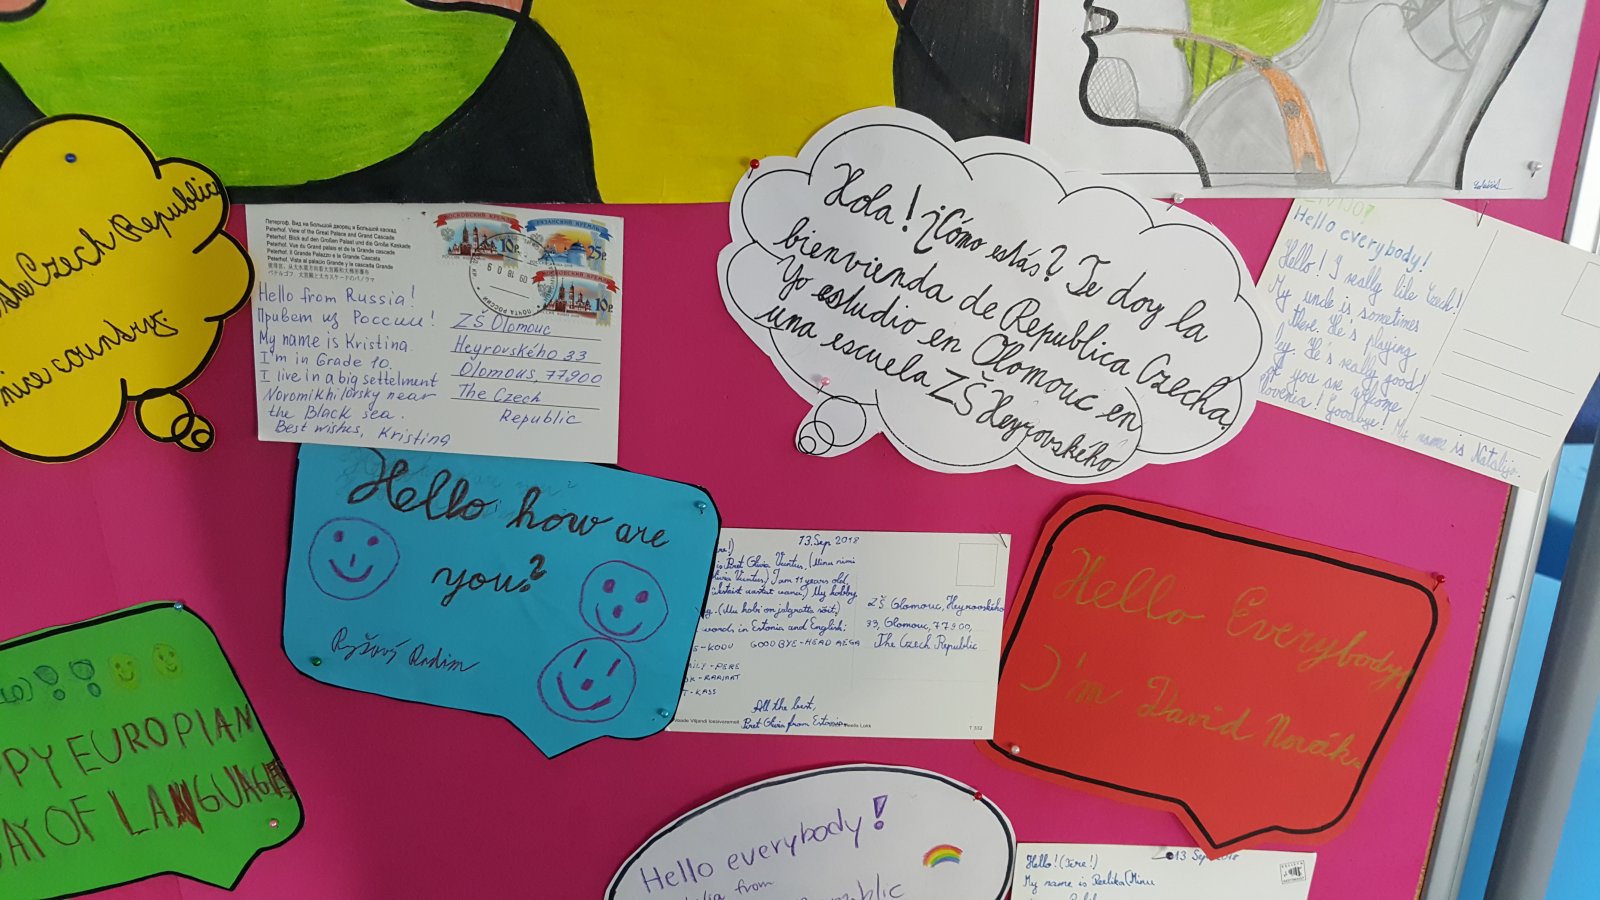 the Czech Republic
nice country.
Петергоф. Вид на Большой дворец и Большой каскад
Peterhof. View of the Great Palace and Grand Cascade
Peterhof. Blick auf den Großen Palast und die Große Kaskade
Peterhof. Vue du Grand palais et de la Grande cascade
Peterhof. Il Grande Palazzo e la Grande Cascata
Peterhof. Vista al palacio Grande y la cascada Grande
МОСКОВСКИЙ КРЕМЛЬ
10р
КАЗАНСКИЙ КРЕМЛЬ
25р
10р
ПОЧТА РОССИИ
Hello from Russia!
Привет из России!
My name is Kristina.
I'm in Grade 10.
I live in a big settelment
Novomikhilovsky near
the Black sea.
Best wishes, Kristina
ZŠ Olomouc
Heyrovského 33
Olomouc, 77900
The Czech
Republic
Hola! ¿Cómo estás? Te doy la
bienvienda de Republica Czecha.
Yo estudio en Olomouc en
una escuela ZŠ Heyrovského
Hello everybody!
Hello! I really like Czech!
My uncle is sometimes
there. He's playing
He's really good!
you are welcome
Slovenia! Goodbye! My name is Natalija.
Hello how are
you?
Ryšavý Radim
13. Sep 2018
is Piret Olivia Vuntus. (Minu nimi
Olivia Vuntus) I am 11 years old.
My hobby
(Mu hobi on jalgratta sõit.)
words in Estonia and English:
KODU GOOD BYE-HEAD AEGA
PERE
RAAMAT
KASS
All the best,
Piret Olivia from Estonia
ZŠ Olomouc, Heyrovského
33, Olomouc, 77900,
The Czech Republic
Hello Everybody!
I'm David Novák.
PPY EUROPIAN
DAY OF LANGUAGE
Hello everybody!
from
Republic
Hello! (Tere!)
13 Sep 2018
My name is Reelika (Minu